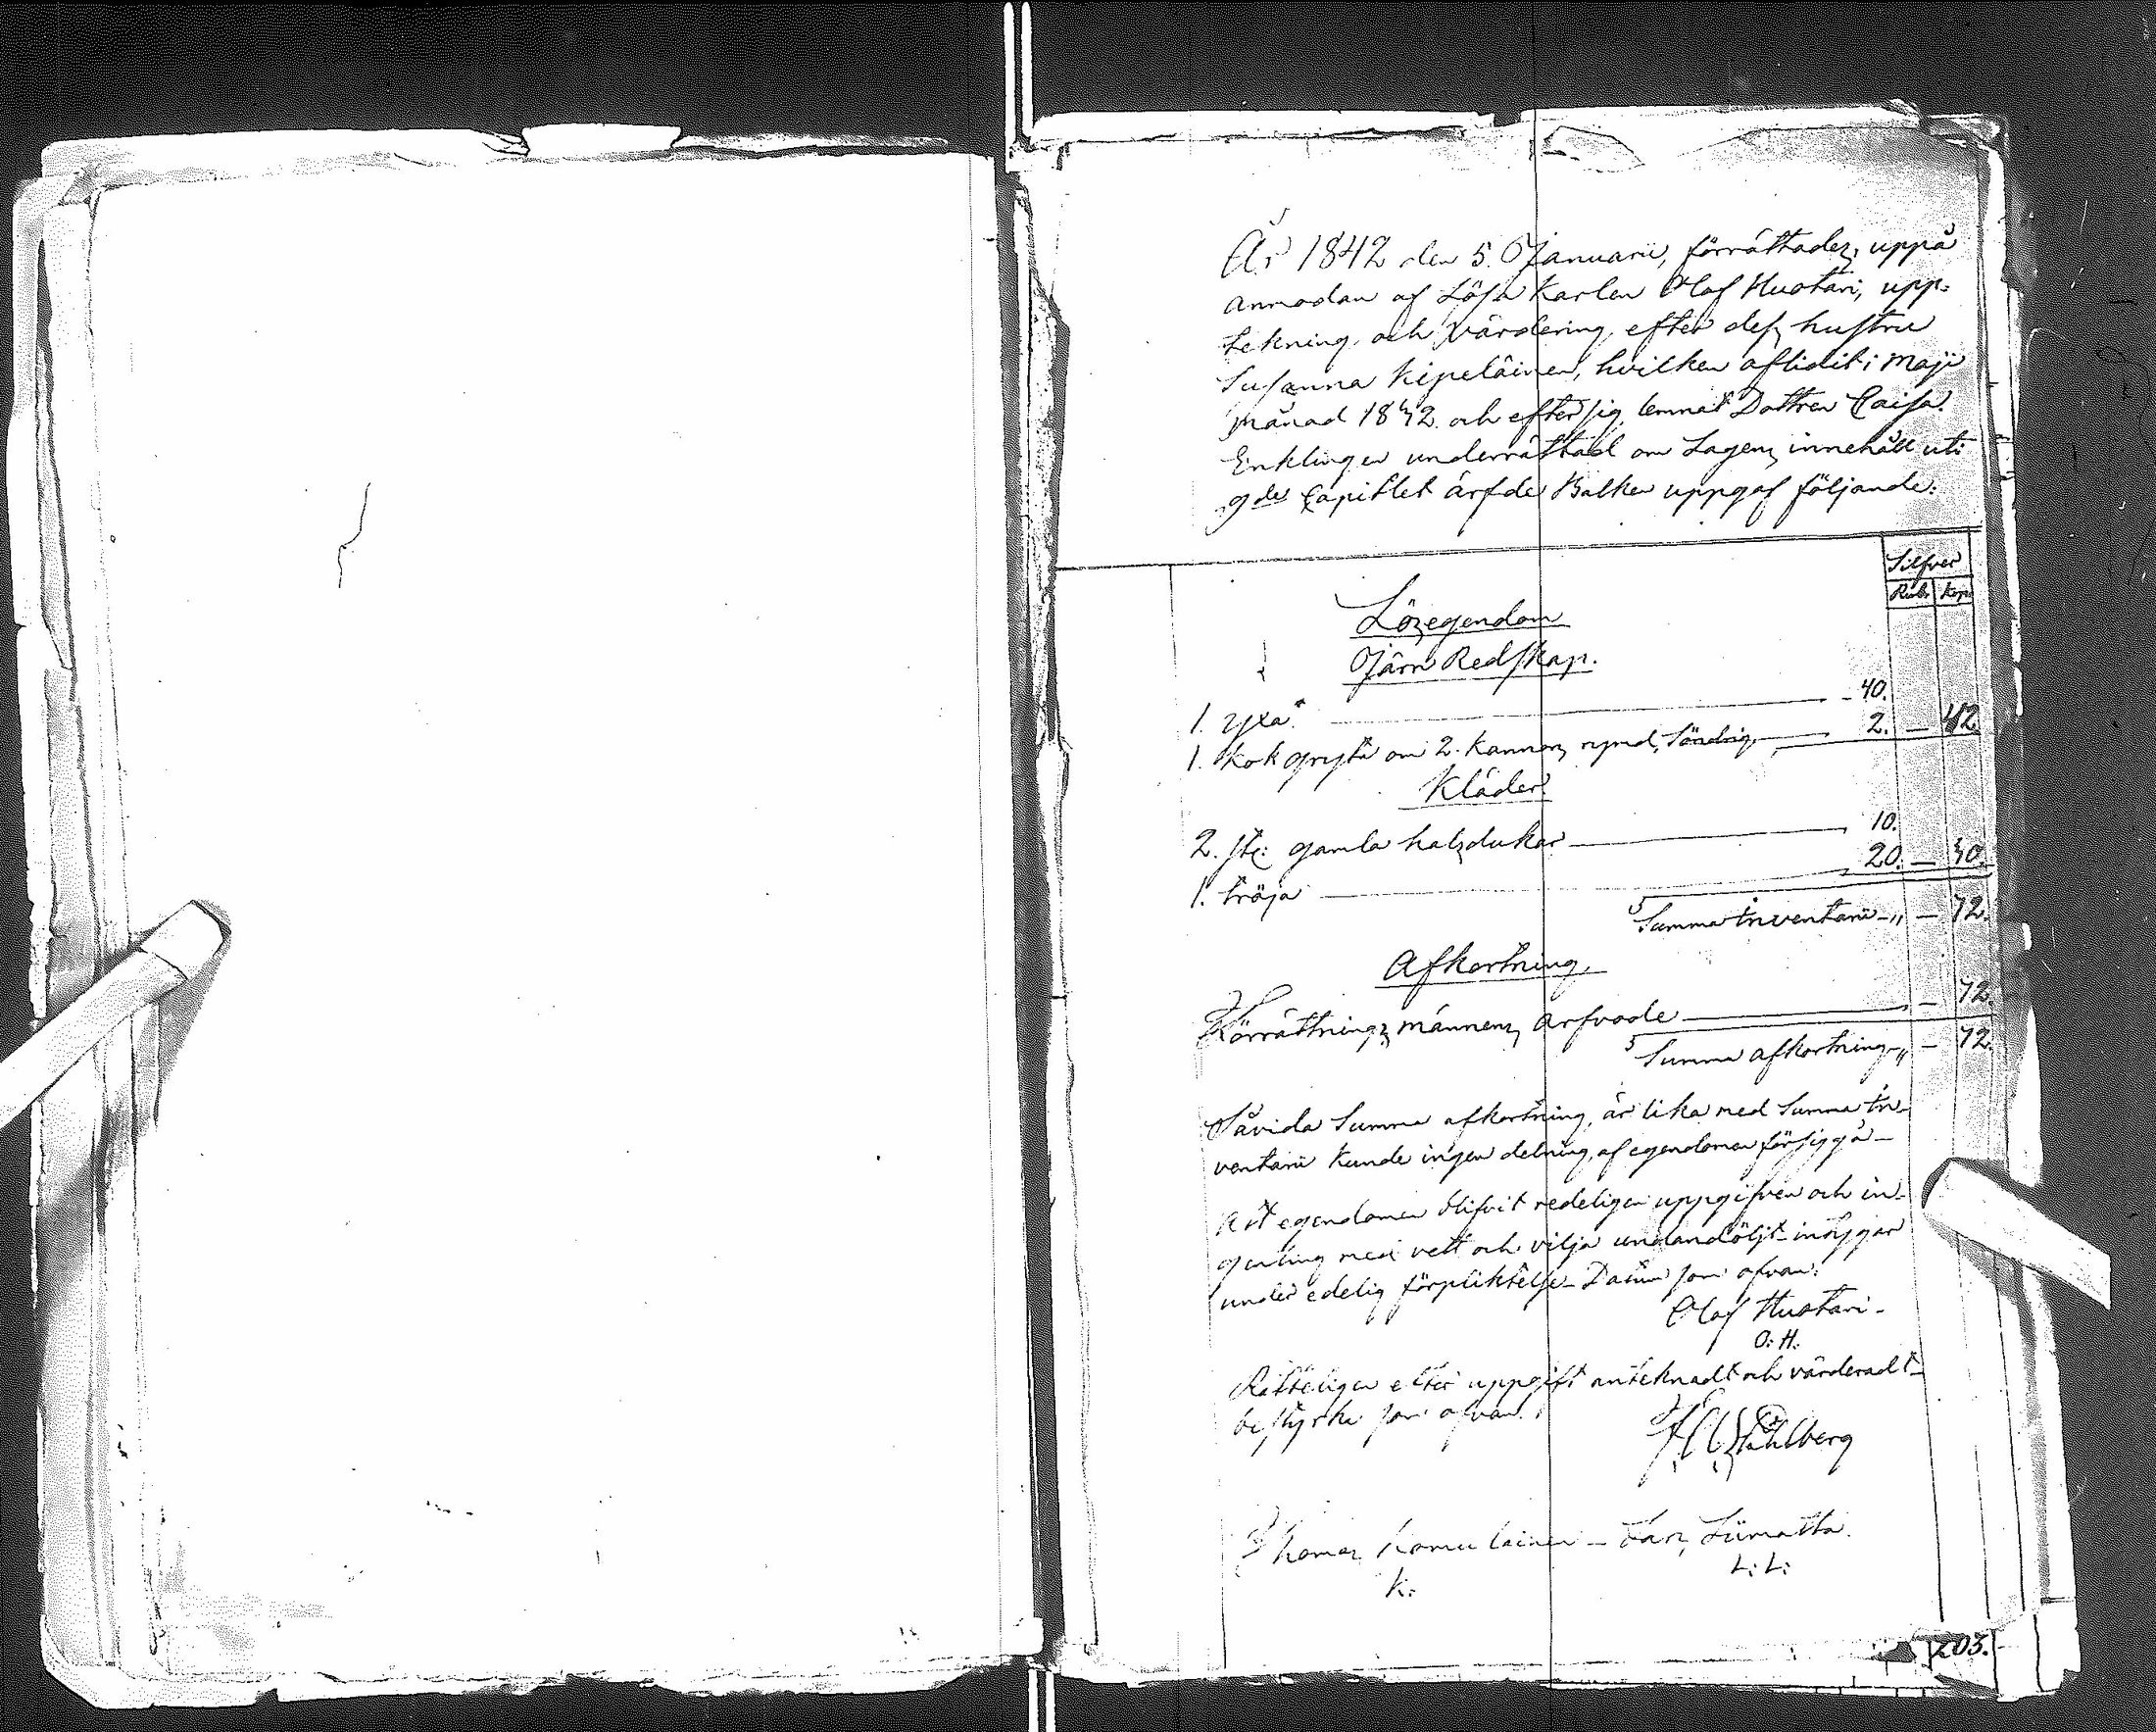 År 1842 den 5. Januarii, förrättades, uppå
anmodan af Lösa Karlen Olof Huotari, upp-
tekning och värdering, efter dess hustru
Susanna Kipeläinen, hvilken aflidit i Maji
månad 1842. och efter sig lemnat Dottren Caisa.
Enklingen underrättad om Lagens innehåll uti
9de Capitlet ärfde Balken uppgaf följande:
Silfver
Rub. Kop.
Lösegendom
Järn Redskap.
1. yxa 40.
1. kok gryta om 2. kannors rymd, söndrig 2. — 42
Kläder
2. st: gamla halsdukar 10.
1. tröja 20. — 30.
Summa Inventarii „ — 72.
Afkortning.
Förrättnings männens Arfvode — 72.
Summa afkortning „ — 72.
Såvida Summa afkortning, är lika med Summa In-
ventarii kunde ingen delning, af egendomen försiggå —
Att egendomen blifvit redeligen uppgifven och in-
genting med vett och vilja undandöljt intygar
under edelig förpliktelse. Datum som ofvan.
Olof Huotari -
O: H.
Rätteligen efter uppgift anteknadt och värderadt
bestyrka som ofvan.
Ståhlberg
Thomas Komulainen — Lars Liimatta.
K: L: L:
203.